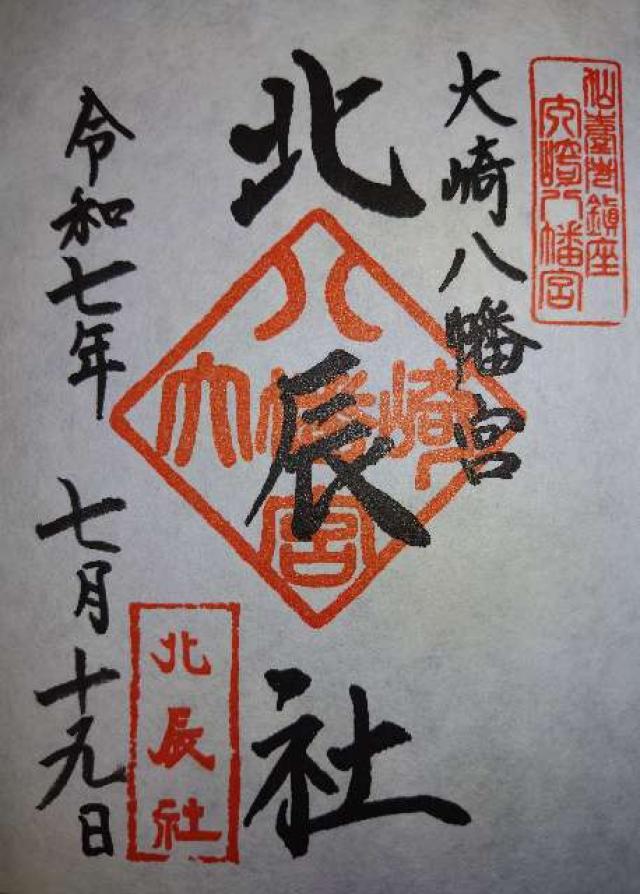 仙臺總鎮座
大崎八幡宮
大崎八幡宮
北辰社
八
大幡崎
宮
北辰社
令和七年 七月十九日